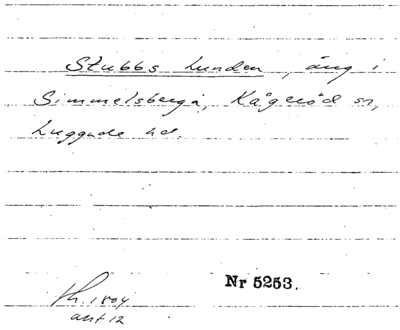 Stubbs Lunden, äng i
Simmelsberga, Kågeröd sn,
Luggude hd.
Nr 5253.
Th. 1804
akt 12